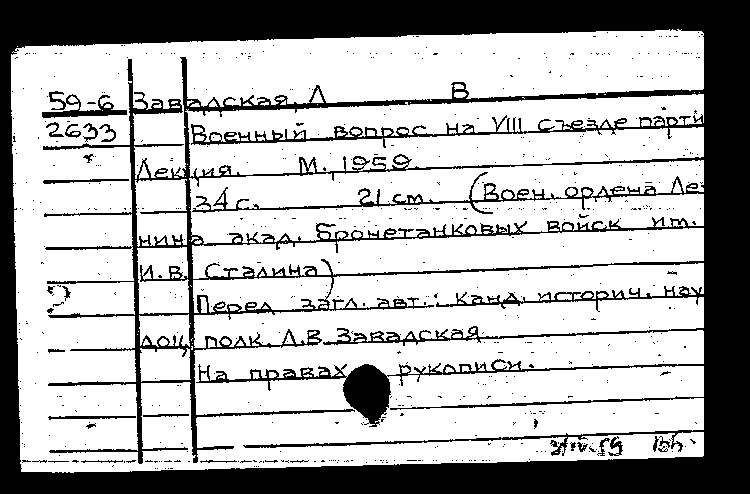 59-6 Завадская, Л В
2633 Военный вопрос на VIII съезде парти
Лекция. М., 1959.
34 с. 21 см. (Воен. ордена Ле
нина акад. бронетанковых войск им.
И.В. Сталина)
Перед загл. авт.: канд. историч. нау
доц. полк. Л.В. Завадская
На правах рукописи.